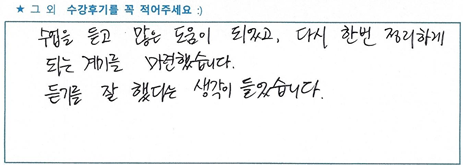 ★ 그 외 수강후기를 꼭 적어주세요 :)
수업을 듣고 많은 도움이 되었고, 다시 한번 정리하게
되는 계기를 마련했습니다.
듣기를 잘 했다는 생각이 들었습니다.